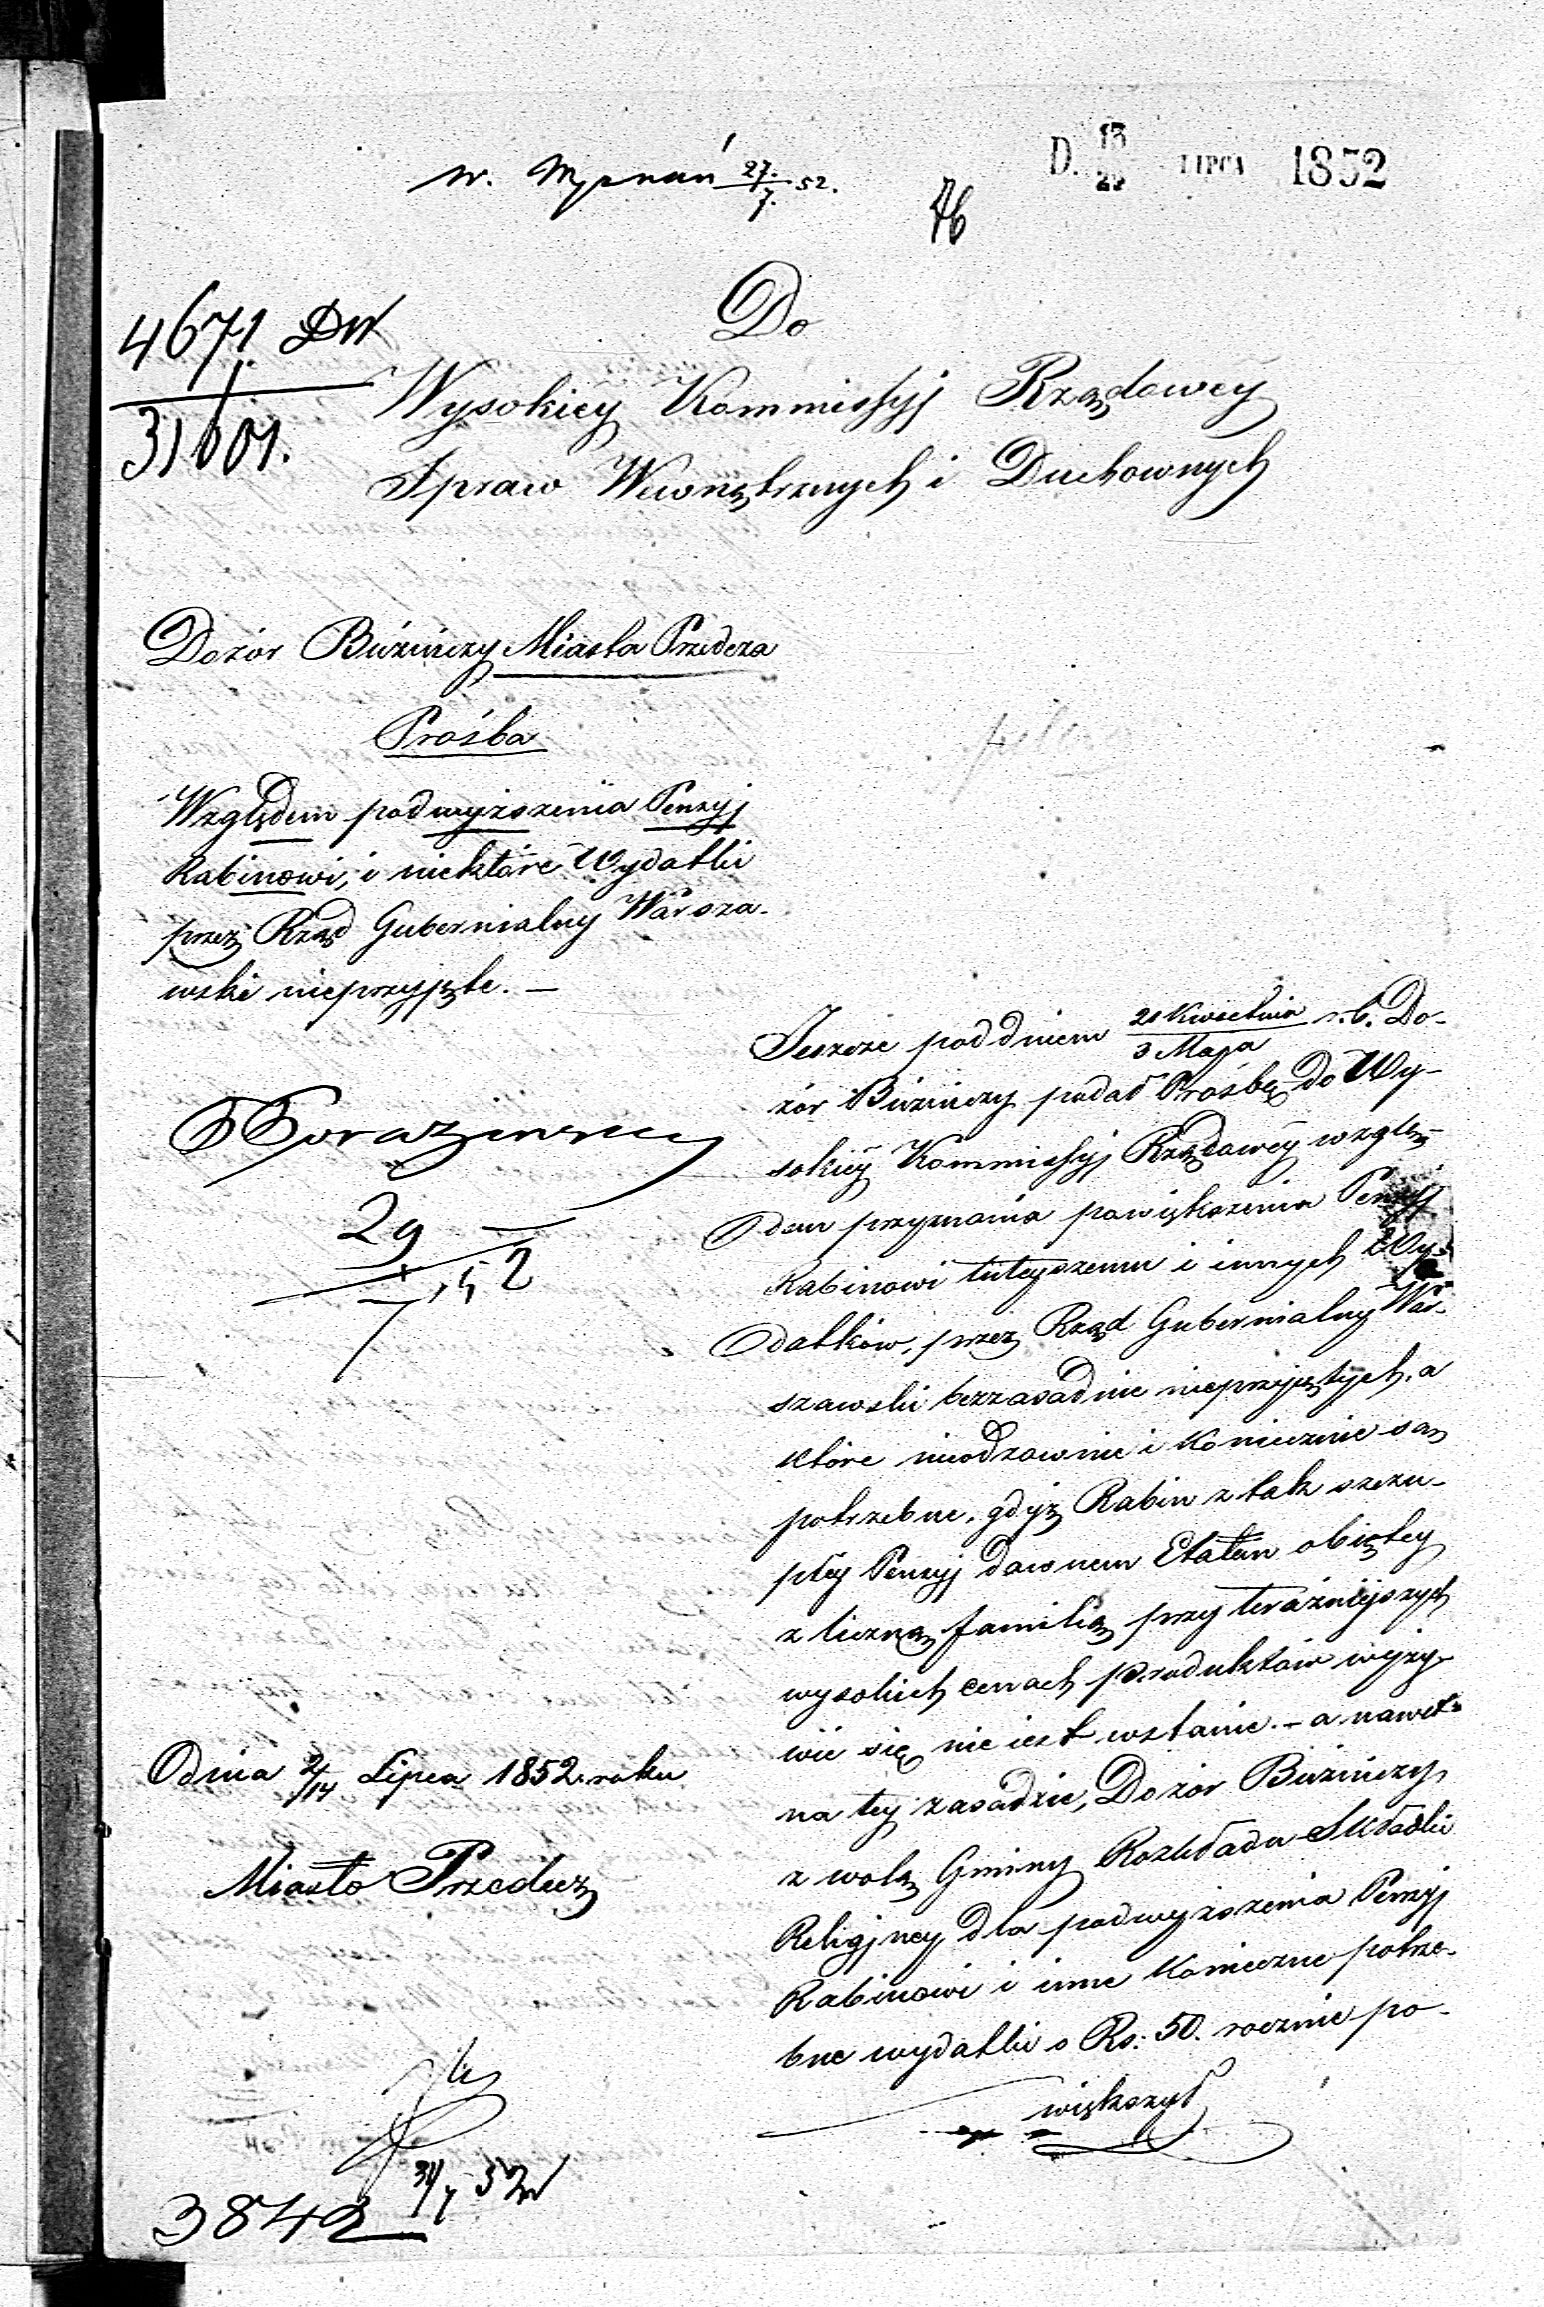 D. 13/29 LIPCA 1852
27./7. 52.
76
4671 DW
31601.
Do
Wysokiéy Kommissyj Rządowéy
Spraw Wewnętrznych i Duchownych
Dozór Bużniczy Miasta Przedcza
Prośba
Względem podwyższenia Pensyj
Rabinowi, i niektóre Wydatki
przez Rząd Gubernialny Warsza-
wski nieprzyjęte. —
29/7 52
Jeszcze pod dniem 21 Kwietnia/3 Maja r. b. Do-
zór Bużniczy podał Prośbę do Wy-
sokiéy Kommissyj Rządowéy wzglę-
dem przyznania powiększenia Pensyj
Rabinowi tuteyszemu i innych Wy-
datków, przez Rząd Gubernialny War-
szawski bezzasadnie nieprzyjętych, a
które nieodzownie i koniecznie są
potrzebne, gdyż Rabin z tak szczu-
płéy Pensyj dawnem Etatem obiętey
z liczną familią przy teraźniéjszych
wysokich cenach produktów wyży-
wić się nie iest wstanie. – a nawet
na téj zasadzie, Dozór Bużniczy
z wolą Gminy Rozkłada Składki
Religijney dla podwyższenia Pensyj
Rabinowi i inne konieczne potrze-
bne wydatki o Rs: 50. rocznie po-
większył
Odnia 2/14 Lipca 1852 roku
Miasto Przedecz
3842